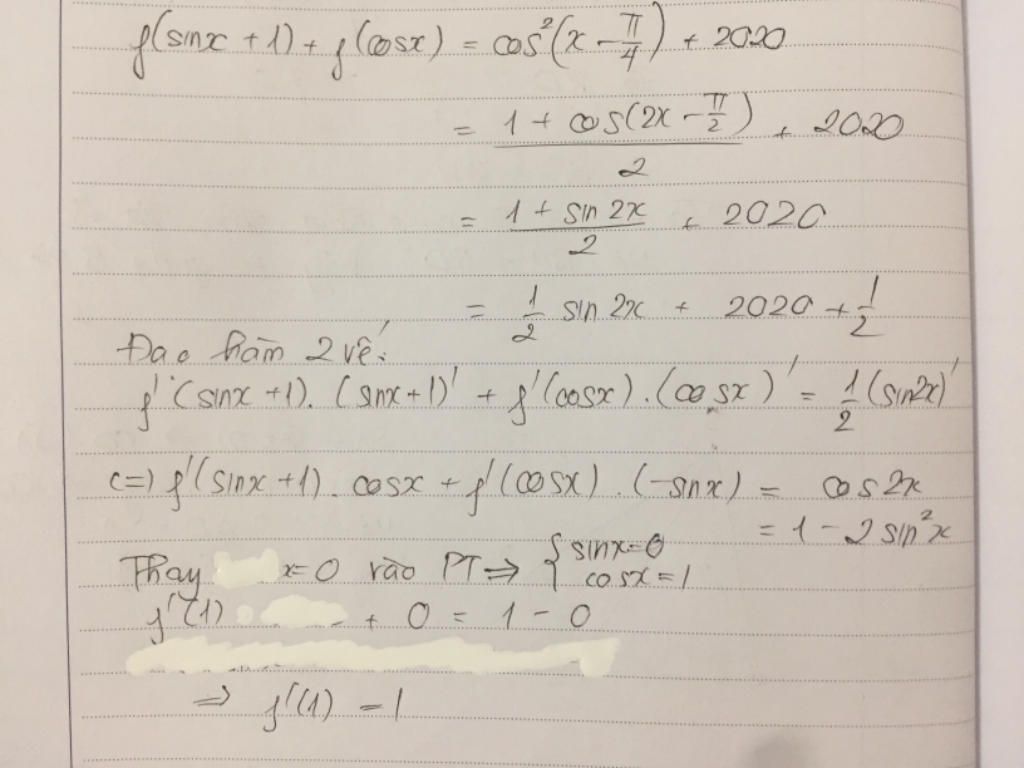 f(sinx + 1) + f(cosx) = cos²(x - π/4) + 2020
= (1 + cos(2x - π/2))/2 + 2020
= (1 + sin 2x)/2 + 2020
= 1/2 sin 2x + 2020 + 1/2
Đạo hàm 2 vế:
f'(sinx + 1). (sinx + 1)' + f'(cosx).(cosx)' = 1/2 (sin2x)'
<=> f'(sinx + 1). cosx + f'(cosx). (-sinx) = cos2x
= 1 - 2 sin²x
Thay x=0 vào PT => { sinx=0
cosx=1
f'(1) + 0 = 1 - 0
=> f'(1) = 1